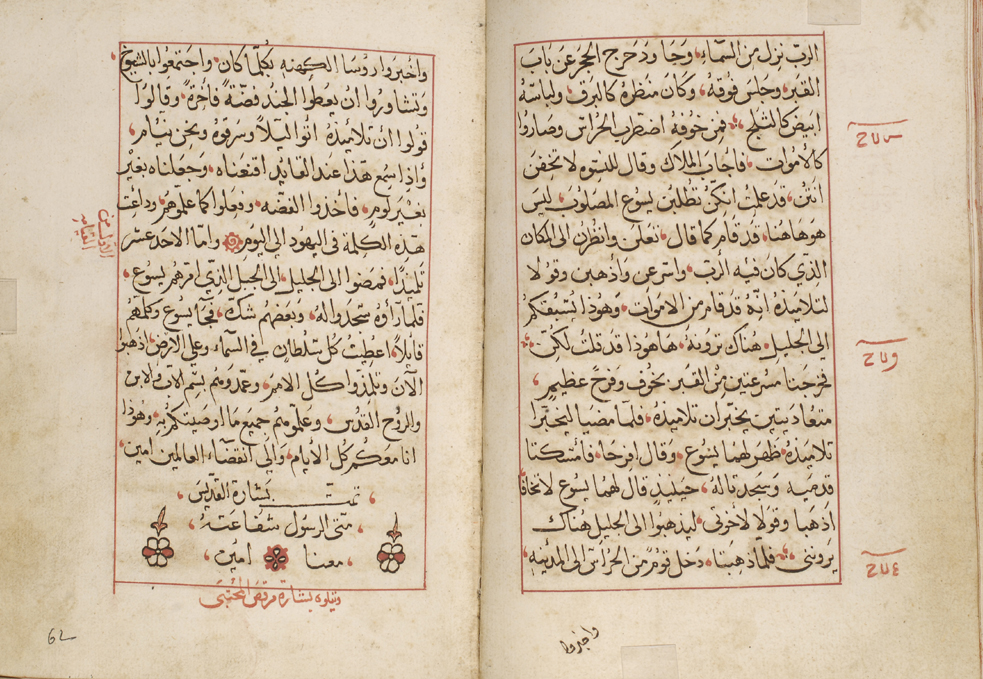 الرب نزل من السماء وجا ودحرج الحجر عن باب
القبر وجلس فوقه وكان منظره كالبرق ولباسه
ابيض كالثلج فمن خوفه اضطرب الحراس وصاروا
كالاموات فاجاب الملاك وقال للنسوه لا تخفن
انتن قد علمت انكن تطلبن يسوع المصلوب ليس
هو هاهنا قد قام كما قال تعلن وانظرن الى المكان
الذي كان فيه الرب واسرعن واذهبن وقولا
لتلاميذه انه قد قام من الاموات وهوذا يسبقكم
الى الجليل هناك ترونه هاهوذا قد قلت لكن
فخرجنا مسرعتين من القبر بخوف وفرح عظيم
متعاديتين يخبران تلاميذه فلما مضيا ليخبرا
تلاميذه ظهر لهما يسوع وقال افرحا فامسكتا
قدميه وسجدتا له حينيذ قال لهما يسوع لا تخافا
اذهبا وقولا لاخوتي ليذهبوا الى الجليل هناك
يروني فلما ذهبتا دخل قوم من الحراس الى المدينه
واخبروا
واخبروا روسا الكهنه بكلما كان واجتمعوا بالشيوخ
وتشاوروا ان يعطوا الجند فضة فاخرة وقالوا
قولوا ان تلاميذه اتوا ليلا وسرقوه ونحن نيام
واذا سمع هذا عند القايد اقنعناه وجعلناه بغير
بغير لوم فاخذوا الفضه وفعلوا كما علموهم وذاعت
هذه الكلمة في اليهود الى اليوم واما الاحد عشر
تلميذا فمضوا الى الجليل الى الجبل الذي امرهم يسوع
فلما راوه سجدوا له وبعضهم شك فجا يسوع وكلمهم
قايلا اعطيت كل سلطان في السماء وعلى الارض اذهبوا
الان وتلمذوا كل الامم وعمدوهم بسم الاب والابن
والروح القدس وعلموهم جميع ما اوصيتكم به وهوذا
انا معكم كل الايام والى انقضاء العالمين امين
تمت بشارة القديس
متى الرسول شفاعته
معنا امين
ويتلوه بشارة مرقص المجتبى
62